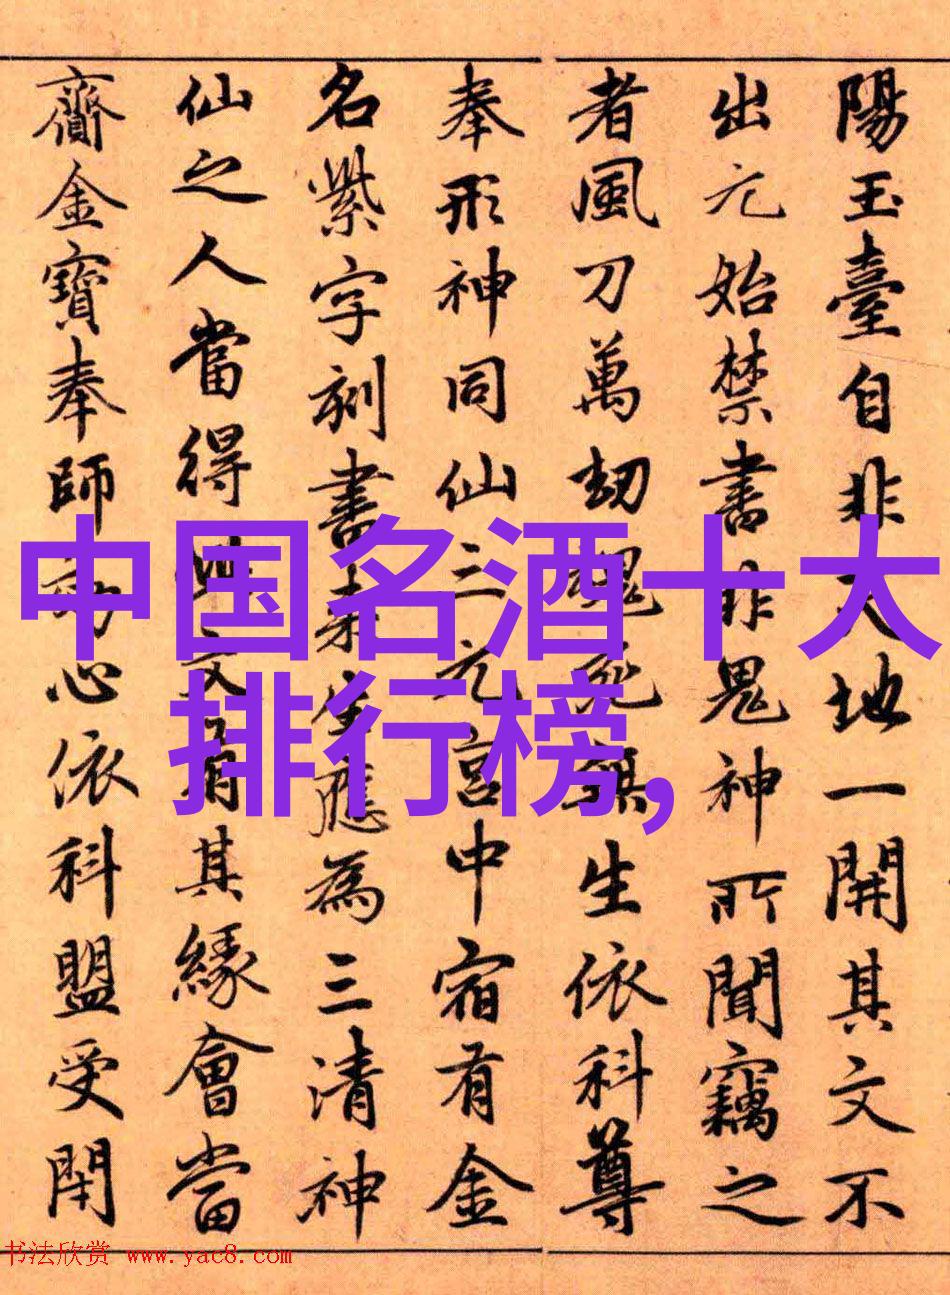 陽玉臺自非天地一開其文不
出元始禁書非鬼神所聞竊之
者風刀萬劫魂死無生依科尊
奉形神同仙三元宮中宿有金
名紫字刻書来生應為三清神
仙之人當得此文有其緣會當
齎金寶奉師心依科盟受閇
中国名酒十大
排行榜,
书法欣赏 www.yac8.com